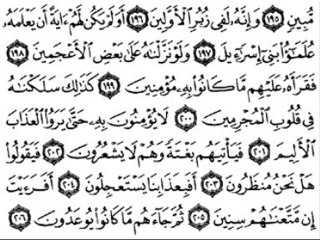 مُّبِينٍ ١٩٥ وَإِنَّهُۥ لَفِى زُبُرِ ٱلْأَوَّلِينَ ١٩٦ أَوَلَمْ يَكُن لَّهُمْ ءَايَةً أَن يَعْلَمَهُۥ
عُلَمَٰٓؤُا۟ بَنِىٓ إِسْرَٰٓءِيلَ ١٩٧ وَلَوْ نَزَّلْنَٰهُ عَلَىٰ بَعْضِ ٱلْأَعْجَمِينَ ١٩٨
فَقَرَأَهُۥ عَلَيْهِم مَّا كَانُوا۟ بِهِۦ مُؤْمِنِينَ ١٩٩ كَذَٰلِكَ سَلَكْنَٰهُ
فِى قُلُوبِ ٱلْمُجْرِمِينَ ٢٠٠ لَا يُؤْمِنُونَ بِهِۦ حَتَّىٰ يَرَوُا۟ ٱلْعَذَابَ
ٱلْأَلِيمَ ٢٠١ فَيَأْتِيَهُم بَغْتَةً وَهُمْ لَا يَشْعُرُونَ ٢٠٢ فَيَقُولُوا۟
هَلْ نَحْنُ مُنظَرُونَ ٢٠٣ أَفَبِعَذَابِنَا يَسْتَعْجِلُونَ ٢٠٤ أَفَرَءَيْتَ
إِن مَّتَّعْنَٰهُمْ سِنِينَ ٢٠٥ ثُمَّ جَآءَهُم مَّا كَانُوا۟ يُوعَدُونَ ٢٠٦